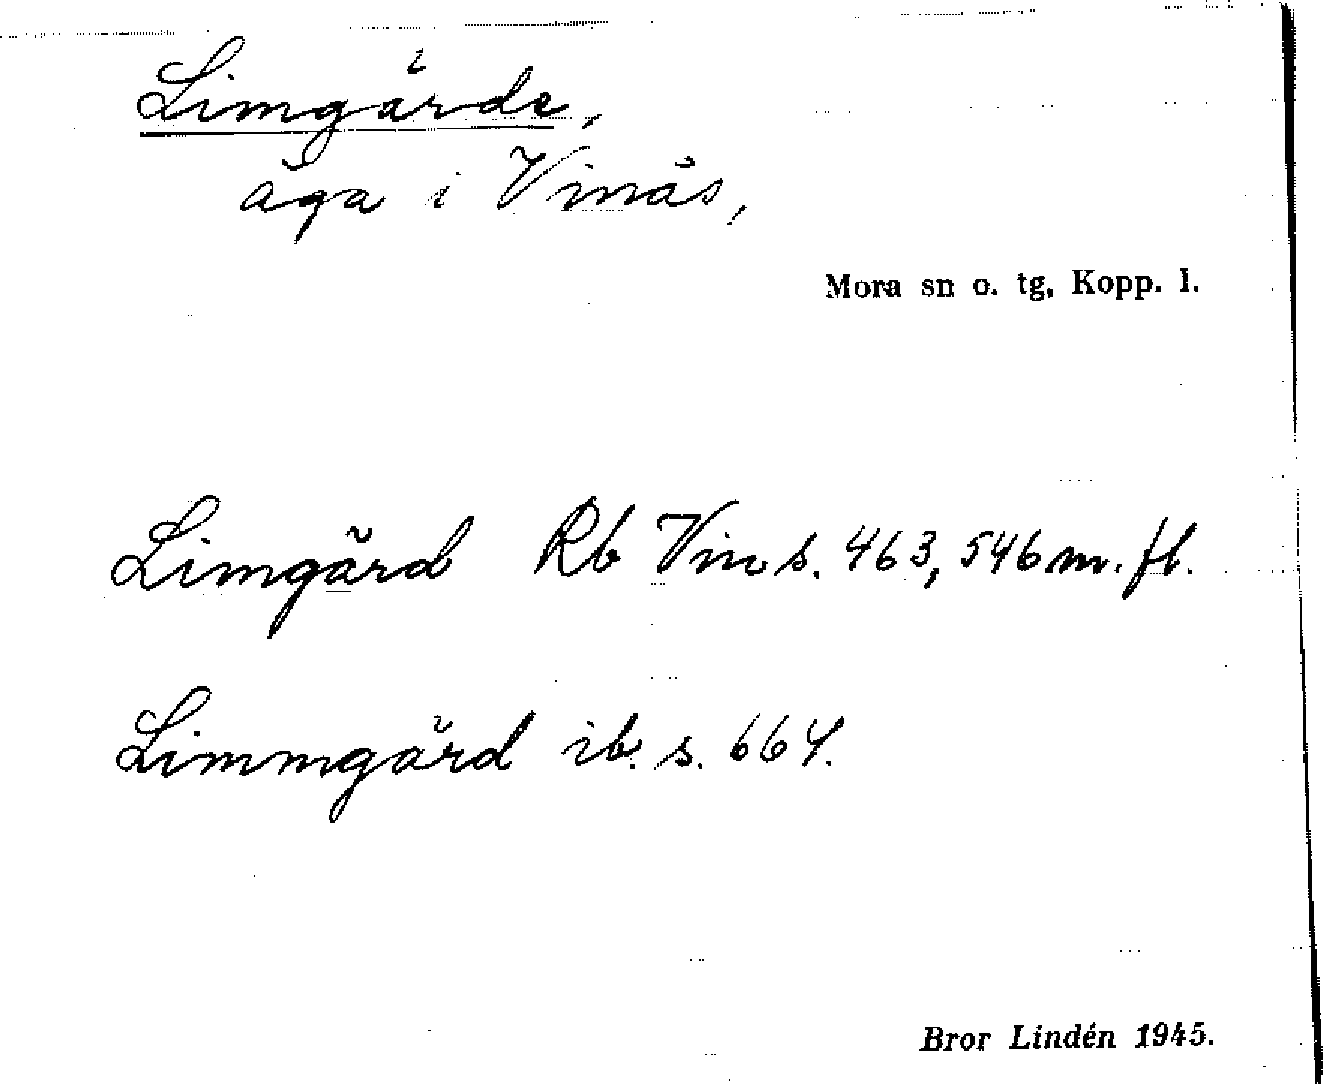 Limgärde,
äga i Vinäs,
Mora sn o. tg, Kopp. l.
Limgärd Rb Vin s. 463, 546 m. fl.
Limmgärd ib. s. 664.
Bror Lindén 1945.